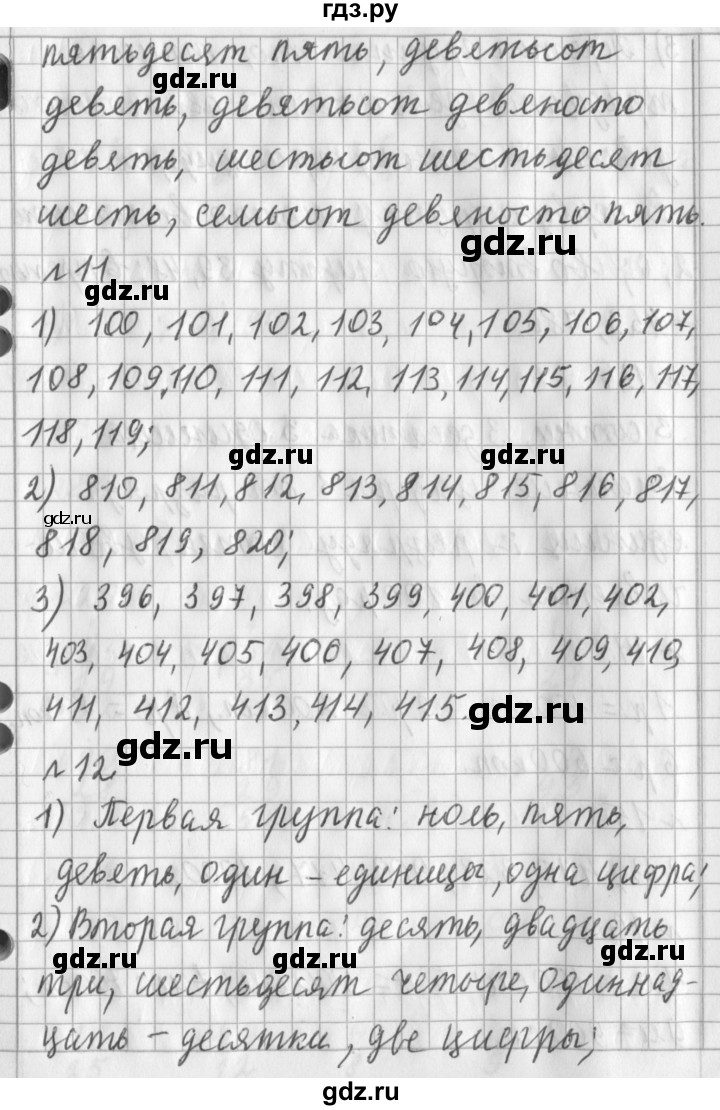 гдз.ру
пятьдесят пять, девятьсот
gdz.ru
девять, девятьсот девяносто
девять, шестьсот шестьдесят
шесть, семьсот девяносто пять.
gdz.ru
№ 11.
gdz.ru
1) 100, 101, 102, 103, 104, 105, 106, 107,
108, 109, 110, 111, 112, 113, 114, 115, 116, 117,
118, 119;
gdz.ru gdz.ru
2) 810, 811, 812, 813, 814, 815, 816, 817,
gdz.ru
818, 819, 820;
3) 396, 397, 398, 399, 400, 401, 402,
403, 404, 405, 406, 407, 408, 409, 410,
411, 412, 413, 414, 415.
gdz.ru
gdz.ru
№ 12.
1) Первая группа: ноль, пять,
девять, один – единицы, одна цифра;
2) Вторая группа: десять, двадцать
gdz.ru gdz.ru gdz.ru
три, шестьдесят четыре, одиннад-
цать – десятки, две цифры;
gdz.ru